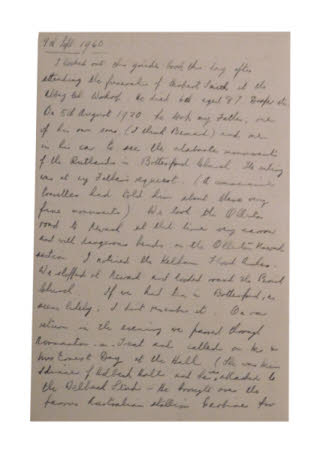 9th Sept. 1960
I looked out this guide book this day after
attending the funeral of Herbert Smith at the
He died 6th aged 87
On 5th August 1920 he took my Father, one
of his own sons (I think Bernard) and me
in his car to see the elaborate monuments
of the Rutlands in Bottesford Church. The outing
was at my Father's request. (A commercial
traveller had told him about these very
fine monuments) We took the Ollerton
road to Newark at that time very narrow
and with dangerous bends on the Ollerton Newark
section. I noticed the Kelham Flood Arches.
We stopped at Newark and looked round the Parish
Church. If we had tea in Bottesford, as
seems likely, I don't remember it. On our
return in the evening we passed through
and called on Mr &
Mrs Ernest Day at the Hall. (She was
and he was attached to
the Stud - He brought over the
famous Australian stallion Carbine for